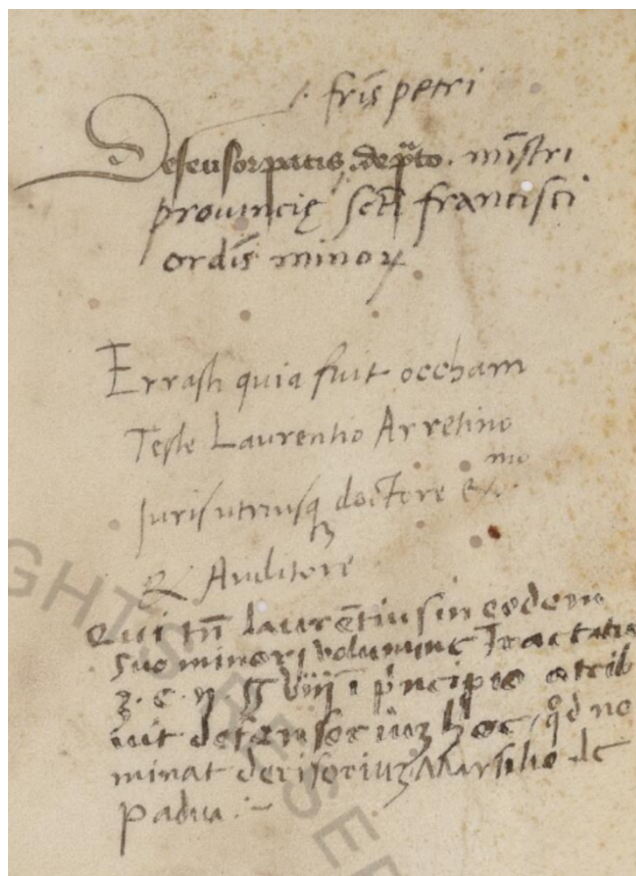 fr̄is petri
Defensor pacis de p̄to. mīstri
prouincię scti francisci
ordīs minoꝝ
Errasti quia fuit occham
Teste Laurentio Arretino
Juris utriusqꝫ doctore ex.mo
& Auditore
Qui tn̄ laurētius in eodem
suo minori volumine Tractatu
3. c. n. īpncipio attrib
uit defensoriuꝫ hoc, qd no
minat derisoriuꝫ Marsilio de
padua :-
GHTS RESER